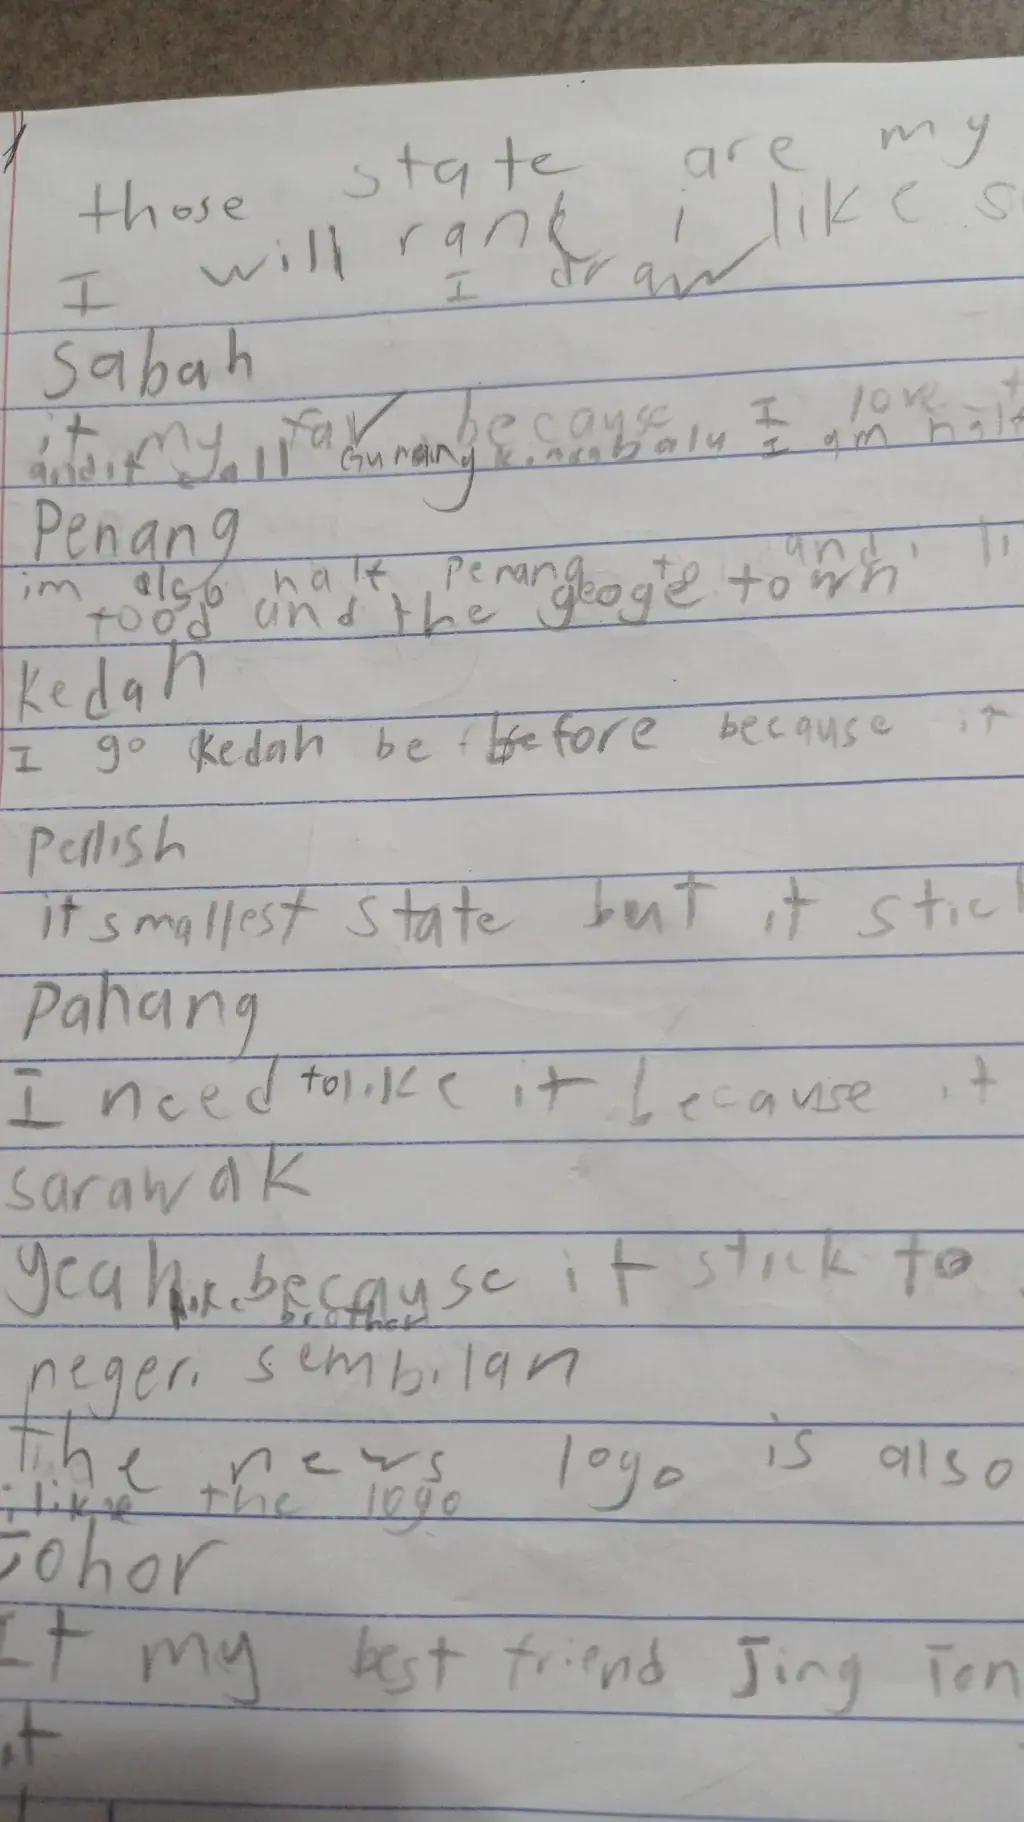 those state are my
I will rank i like
I draw
Sabah
it my fav because I love
and it call Gunung kinabalu I am half
Penang
im also half penang and i
food and the geogte town
Kedah
I go Kedah be before because it
perlish
it smallest state but it
Pahang
I need to like it because it
sarawak
yeah because it stick to
like brother
negeri sembilan
the news logo is also
i like the logo
Johor
It my best friend Jing
it